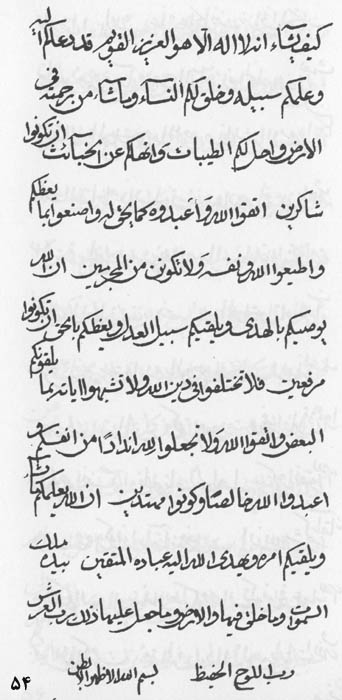 كيف يشاء انه لا اله الا هو العزيز القيوم قد علمكم الله
وعلمكم سبيله وخلق لكم النساء وما شاء من رحمته في
الارض واحل لكم الطيبات وانهكم عن الخبائث ان تكونوا
شاكرين اتقوا الله واعبدوه واصنعوا بما يعظكم
واطيعوا الله ولا تكون من المجرمين ان الله
يوصيكم بالهدى ويلقيكم سبيل العدل ويعظكم ان تكونوا
فلا تختلفوا في دين الله ولا
البعض واتقوا الله ولا تجعلوا لله اندادا من انفسكم و
اعبدوا الله خالصا وكونوا مهتدين ان الله يعلمكم
ويلقيكم امره ويهدى الله اليه عباده المتقين بيده ملك
السموات وما خلق فيها والارض وما جعل عليها ذلك رب العرش
ورب اللوح الحفيظ بسم الله
٥۴